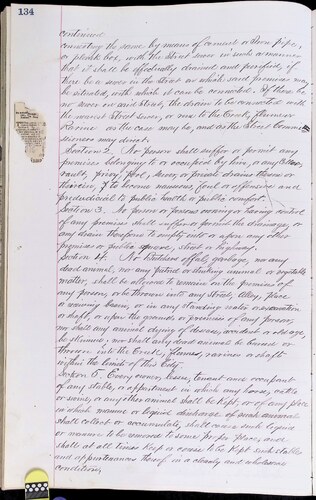 134
continued
conveying the same by means of cement or stone pipe,
or plank box, with the Street sewer in such a manner
that it shall be effectually drained and purified, if
there be a sewer in the Street on which said premises may
be situated, with which it can be connected. If there be
no sewer on said Street, the drain to be connected with
the nearest Street sewer, or run to the Creek, flume or
Ravine as the case may be, and as the Street Commis-
sioner may direct.
Section 2. No person shall suffer or permit any
premises belonging to or occupied by him, or any Cellar
vault, privy, pool, sewer, or private drains thereon or
therein, to become nauseous, foul or offensive and
predudicial to public health or public comfort.
Section 3. No person or persons owning or having control
of any premises shall suffer or permit the drainage, or
any drain therefrom to empty into or upon any other
premises or public square, street or highway.
Section 4. No butchers offal, garbage, nor any
dead animal, nor any putrid or stinking animal or vegetable
matter, shall be allowed to remain on the premises of
any person, or be thrown into any Street, Alley, place
or running stream, or in any standing water or excavation
or shaft, or upon the grounds or premises of any person,
nor shall any animal dying of disease, accident or old age,
be skinned, nor shall any dead animal be buried or
thrown into the Creeks, flumes, ravines or shafts
within the limits of this City.
Section 5. Every owner, lessee, tenant and occupant
of any stable, or appartment in which any horse, cattle
or swine, or any other animal shall be kept, or of any place
in which manure or liquid discharge of such animal
shall collect or accumulate, shall cause such liquid
or manure to be removed to some proper place, and
shall at all times keep or cause to be kept such stable
and appurtenances thereof in a cleanly and wholesome
condition,